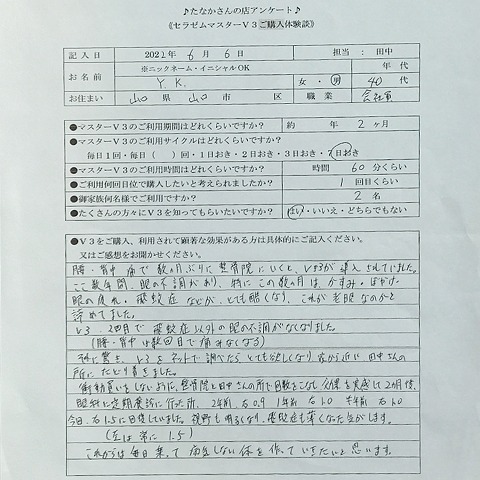 ♪たなかさんの店アンケート♪
≪セラゼムマスターV3ご購入体験談≫
記入日 2022年 6月 6日 担当:田中
お名前 ※ニックネーム・イニシャルOK Y.K. 女・男 年代 40代
お住まい 山口県 山口市 区 職業 会社員
●マスターV3のご利用期間はどれくらいですか? 約 年 2ヶ月
●マスターV3のご利用サイクルはどれくらいですか?
毎日1回・毎日( )回・1日おき・2日おき・3日おき・7日おき
●マスターV3のご利用時間はどれくらいですか? 時間 60分くらい
●ご利用何回目位で購入したいと考えられましたか? 1回目くらい
●御家族何名様でご利用ですか? 2名
●たくさんの方々にV3を知ってもらいたいですか? はい・いいえ・どちらでもない
●V3をご購入、利用されて顕著な効果がある方は具体的にご記入ください。
又はご感想をお聞かせください。
腰・背中痛で数ヵ月ぶりに整骨院にいくと、V3が導入されていました。
ここ数年間、眼の不調があり、特にこの数ヵ月は、かすみ・ぼやけ・
眼の疲れ・飛蚊症などが、とても酷くなり、これが老眼なのかと
諦めてました。
V3 2回目で飛蚊症以外の眼の不調がなくなりました。
(腰・背中は数回目で痛みなくなる)
特に驚き、V3をネットで調べたらとても欲しくなり家から近い田中さんの
所にたどり着きました。
衝動買いをしないように、整骨院と田中さんの所で回数をこなし、効果を実感して2ヵ月後、
眼科に定期検診に行った所、2年前 右0.9 1年前 右1.0 半年前 右1.0
今日、右1.5に回復していました。視野も明るくなり、飛蚊症も薄くなった気がします。
(左は常に1.5)
これからは毎日乗って病気しない体を作っていきたいと思います。